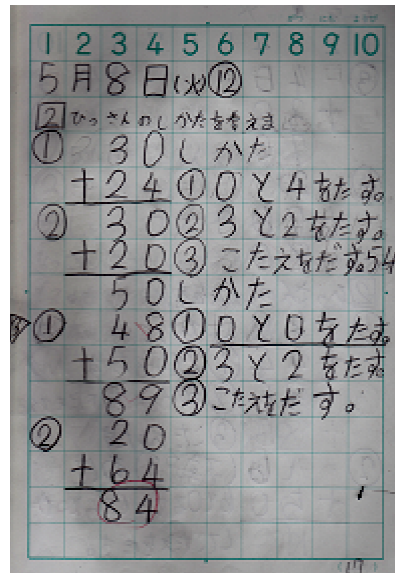 1 2 3 4 5 6 7 8 9 10
5月8日(火)⑫
2 ひっさんのしかたを考えま
① 30 しかた
+24 ①0と4をたす。
② 30 ②3と2をたす。
+20 ③こたえをだす。54
50 しかた
① 48 ①0と0をたす。
+50 ②3と2をたす。
89 ③こたえをだす。
② 20
+64
84